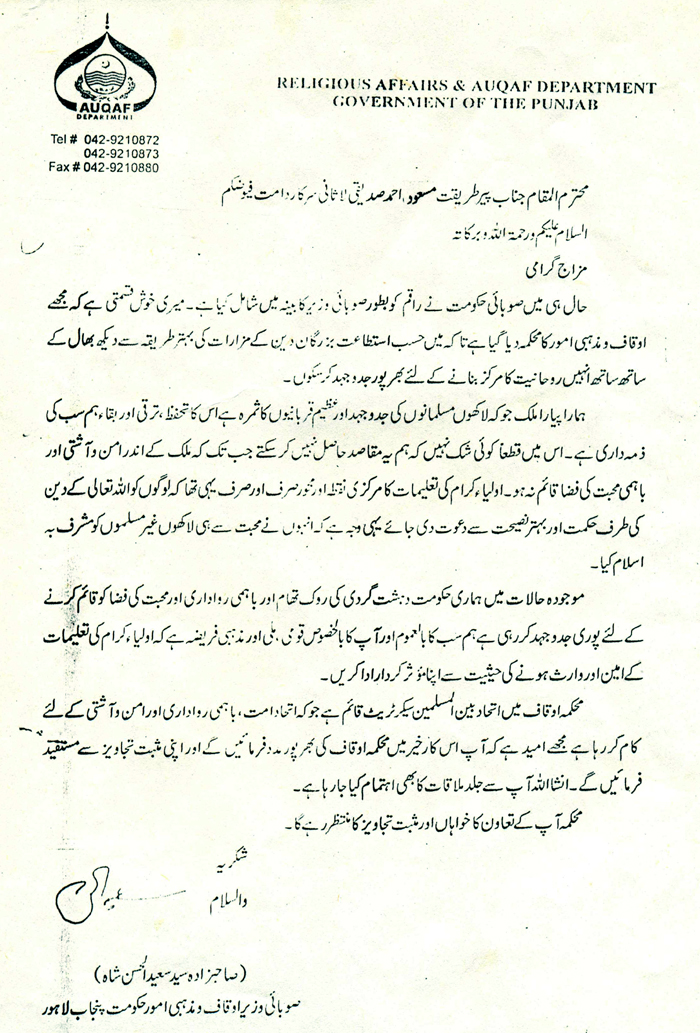 AUQAF
DEPARTMENT
RELIGIOUS AFFAIRS & AUQAF DEPARTMENT
GOVERNMENT OF THE PUNJAB
Tel # 042-9210872
042-9210873
Fax # 042-9210880
محترم المقام جناب پیر طریقت مسعود احمد صدیقی لاثانی سرکار دامت فیوضکم
السلام علیکم ورحمۃ اللہ وبرکاتہ
مزاج گرامی
حال ہی میں صوبائی حکومت نے راقم کو بطور صوبائی وزیر کابینہ میں شامل کیا ہے۔ میری خوش قسمتی ہے کہ مجھے
اوقاف و مذہبی امور کا محکمہ دیا گیا ہے تاکہ میں حسب استطاعت بزرگان دین کے مزارات کی بہتر طریقہ سے دیکھ بھال کے
ساتھ ساتھ انہیں روحانیت کا مرکز بنانے کے لئے بھرپور جدوجہد کر سکوں۔
ہمارا پیارا ملک جو کہ لاکھوں مسلمانوں کی جدوجہد اور عظیم قربانیوں کا ثمرہ ہے اس کا تحفظ، ترقی اور بقاء ہم سب کی
ذمہ داری ہے۔ اس میں قطعاً کوئی شک نہیں کہ ہم یہ مقاصد حاصل نہیں کر سکتے جب تک کہ ملک کے اندر امن و آشتی اور
باہمی محبت کی فضا قائم نہ ہو۔ اولیاء کرام کی تعلیمات کا مرکزی نقطہ اور محور صرف اور صرف یہی تھا کہ لوگوں کو اللہ تعالی کے دین
کی طرف حکمت اور بہتر نصیحت سے دعوت دی جائے یہی وجہ ہے کہ انہوں نے محبت سے ہی لاکھوں غیر مسلموں کو مشرف بہ
اسلام کیا۔
موجودہ حالات میں ہماری حکومت دہشت گردی کی روک تھام اور باہمی رواداری اور محبت کی فضا کو قائم کرنے
کے لئے پوری جدوجہد کر رہی ہے ہم سب کا بالعموم اور آپ کا بالخصوص قومی، ملی اور مذہبی فریضہ ہے کہ اولیاء کرام کی تعلیمات
کے امین اور وارث ہونے کی حیثیت سے اپنا مؤثر کردار ادا کریں۔
محکمہ اوقاف میں اتحاد بین المسلمین سیکرٹریٹ قائم ہے جو کہ اتحاد امت، باہمی رواداری اور امن و آشتی کے لئے
کام کر رہا ہے مجھے امید ہے کہ آپ اس کار خیر میں محکمہ اوقاف کی بھرپور مدد فرمائیں گے اور اپنی مثبت تجاویز سے مستفید
فرمائیں گے۔ انشا اللہ آپ سے جلد ملاقات کا بھی اہتمام کیا جا رہا ہے۔
محکمہ آپ کے تعاون کا خواہاں اور مثبت تجاویز کا منتظر رہے گا۔
شکریہ
والسلام
(صاحبزادہ سید سعید الحسن شاہ)
صوبائی وزیر اوقاف و مذہبی امور حکومت پنجاب لاہور